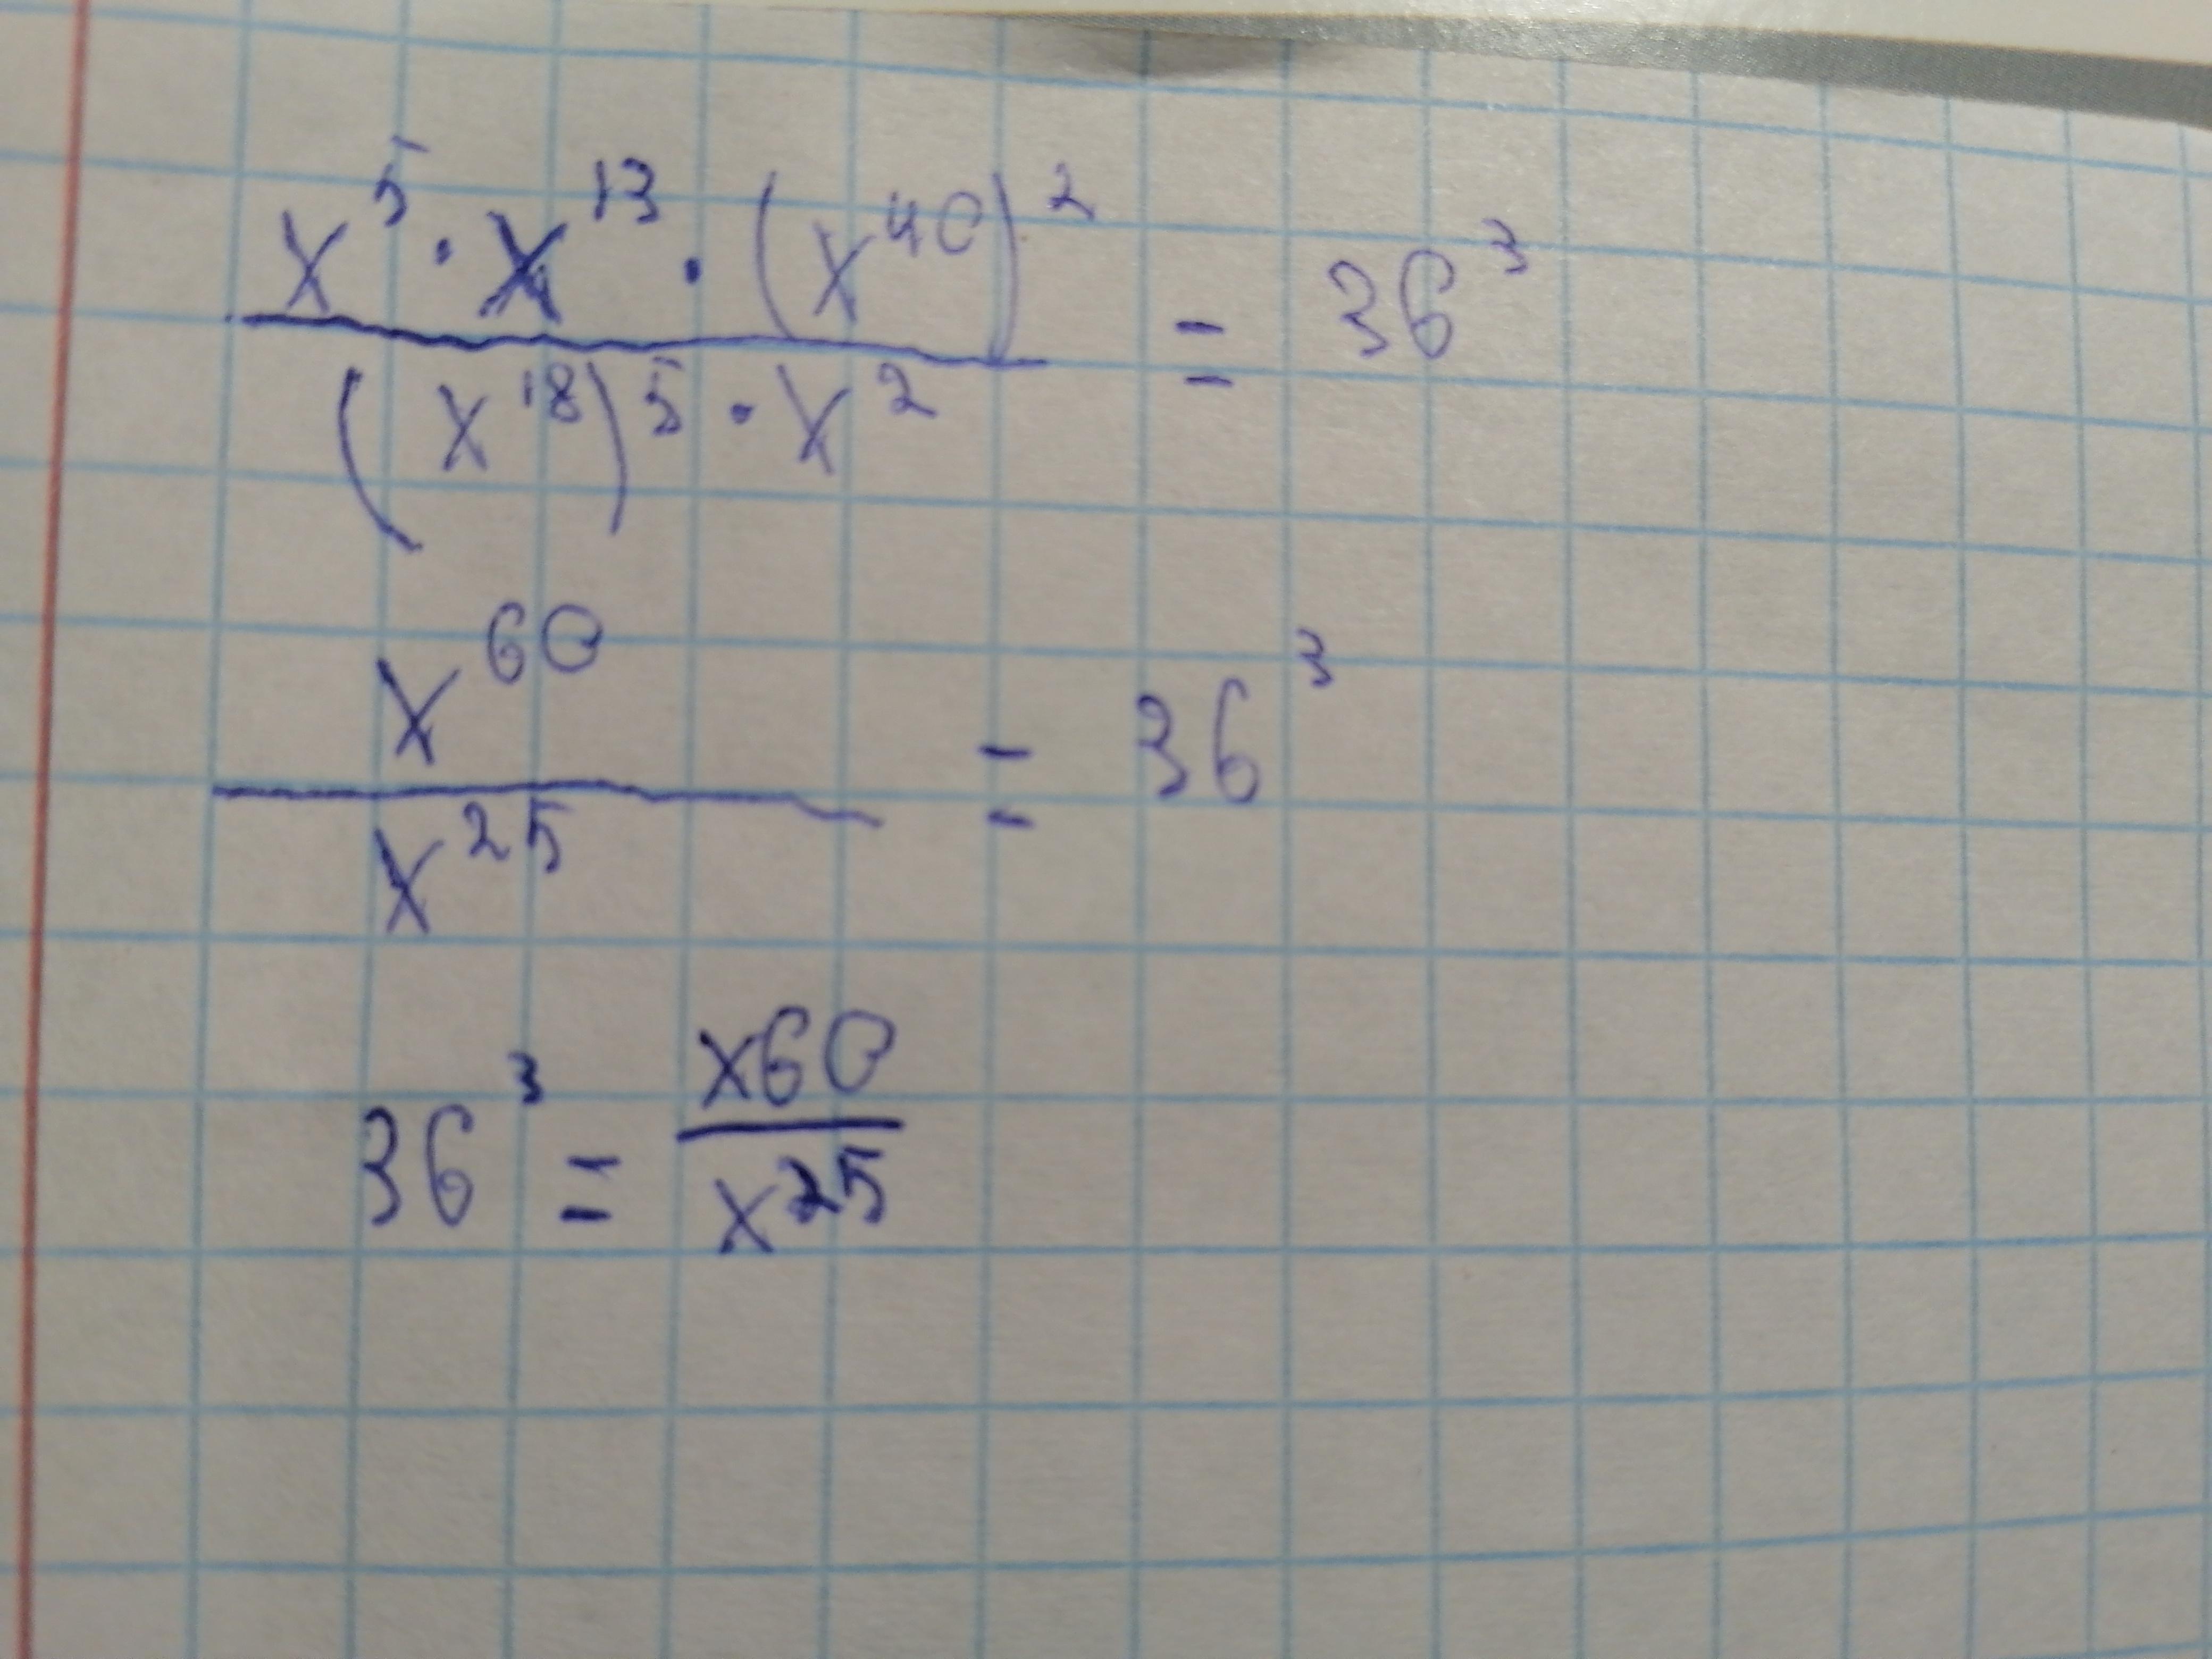 x⁵ · x¹³ · (x⁴⁰)² / (x¹⁸)⁵ · x² = 36³
x⁶⁰ / x²⁵ = 36³
36³ = x60 / x²⁵